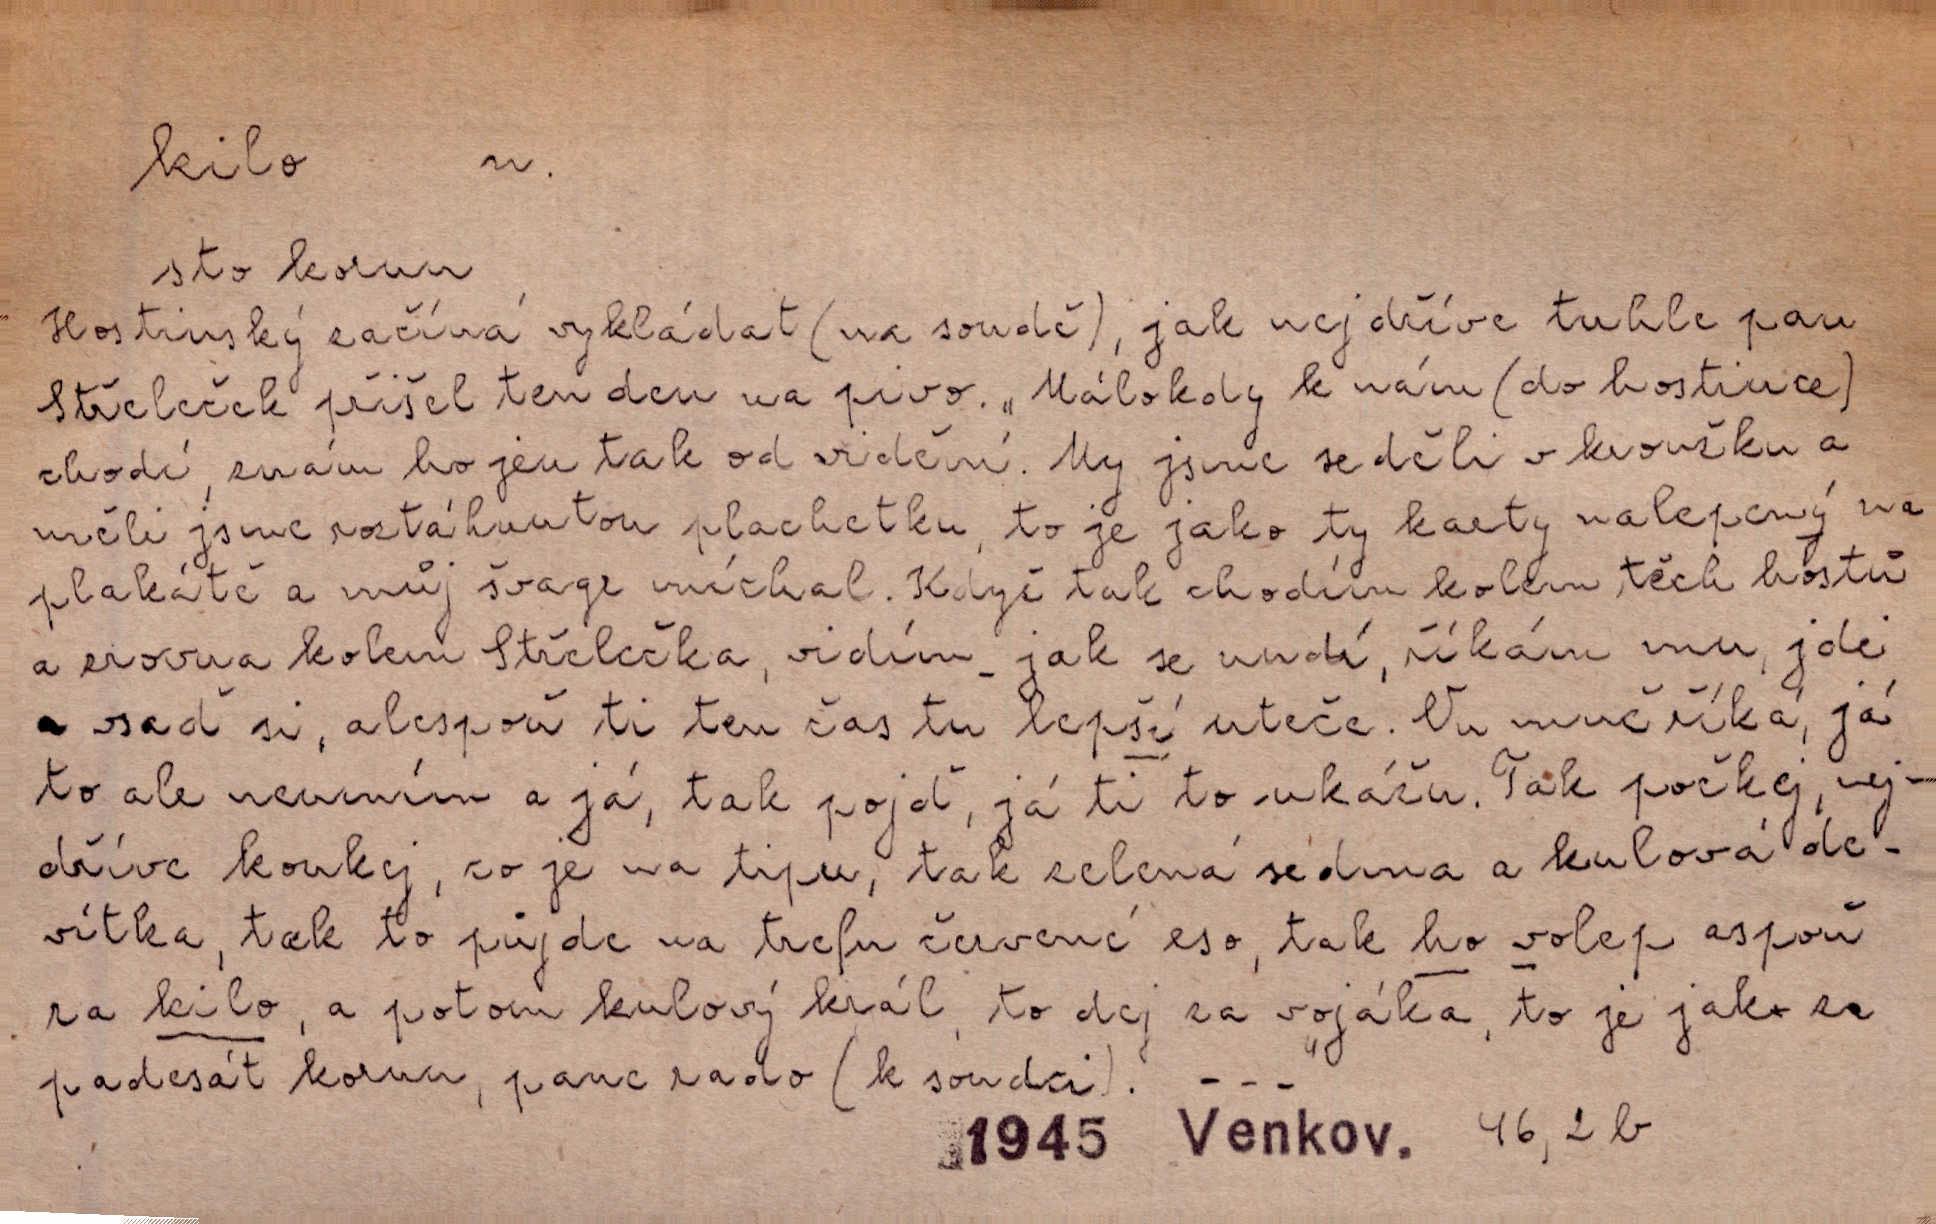 kilo n.
sto korun
Hostinský začíná vykládat (na soudě), jak nejdříve tuhle pan
Střeleček přišel ten den na pivo. „Málokdy k nám (do hostince)
chodí, znám ho jen tak od vidění. My jsme seděli v kroužku a
měli jsme roztáhnutou plachetku, to je jako ty karty nalepený na
plakátě a můj švagr míchal. Když tak chodím kolem těch hostů
a zrovna kolem Střelečka, vidím jak se nudí, říkám mu, jdi
a vsaď si, alespoň ti ten čas tu lepší uteče. Nu mně říká, já
to ale neumím a já, tak pojď, já ti to ukážu. Tak počkej, nej-
dříve koukej, co je na tipu, tak zelená sedma a kulová de-
vítka, tak to půjde na trefu červené eso, tak ho volep aspoň
za kilo, a potom kulový král, to dej za vojáka, to je jako za
padesát korun, pane rado (k soudci)." ---
1945 Venkov. 46, 2 b